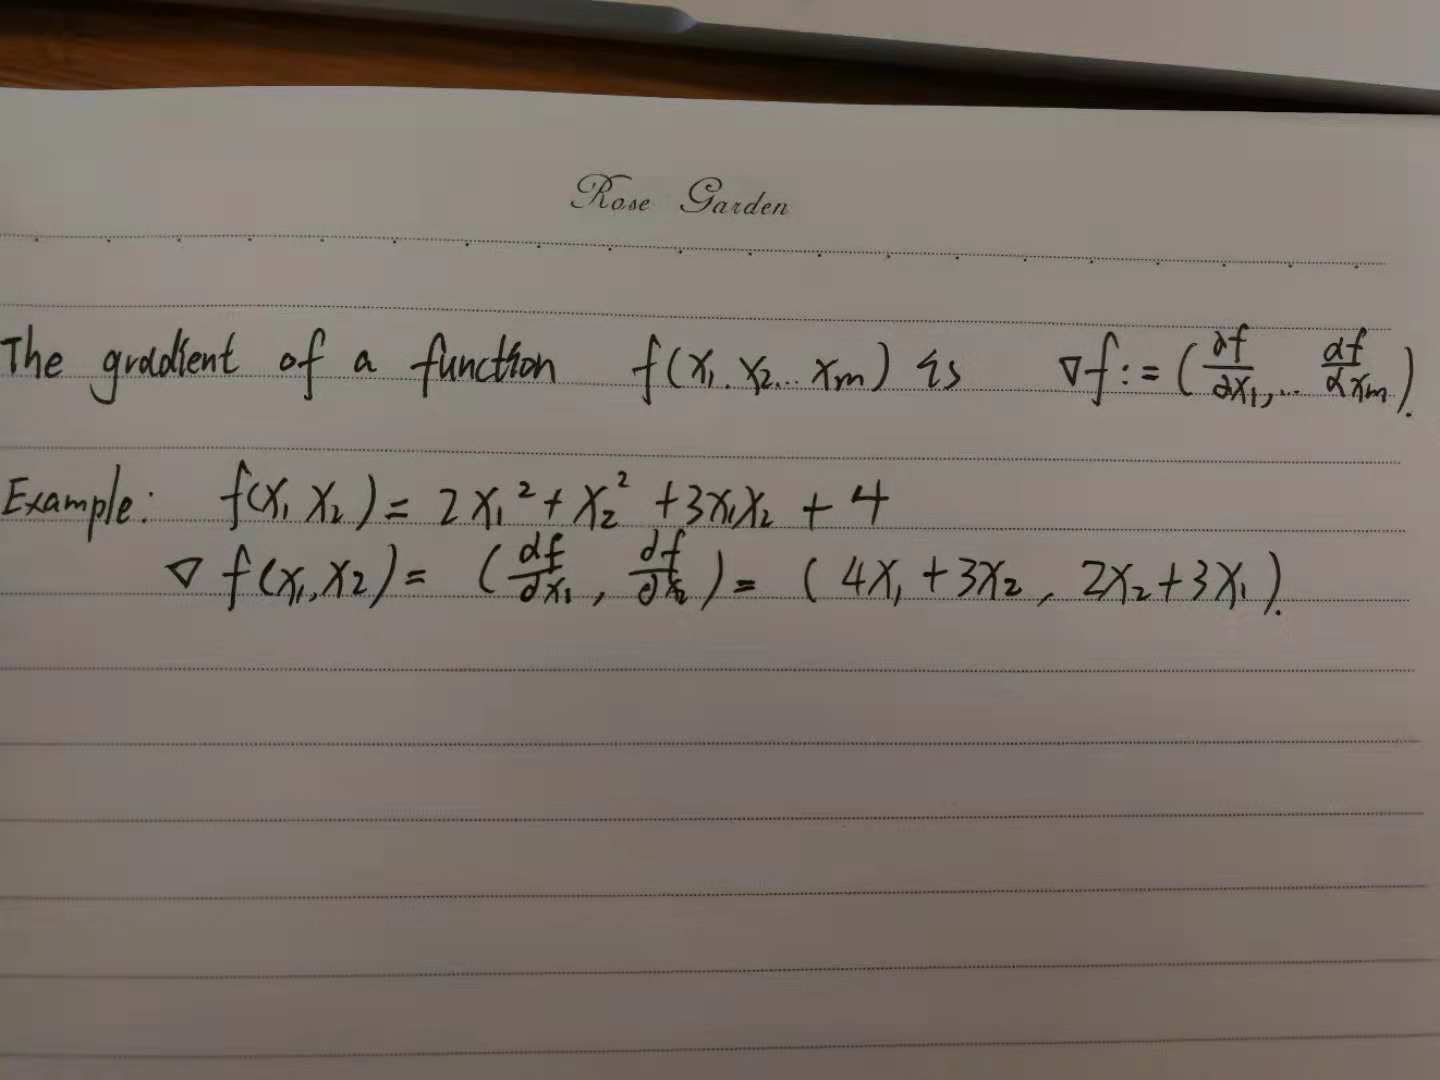 Rose Garden
The gradient of a function f(x₁.x₂...xₘ) is ∇f:=(∂f/∂x₁,... ∂f/∂xₘ).
Example: f(x₁ x₂)=2x₁²+x₂²+3x₁x₂+4
∇f(x₁,x₂)=(∂f/∂x₁, ∂f/∂x₂)=(4x₁+3x₂, 2x₂+3x₁).